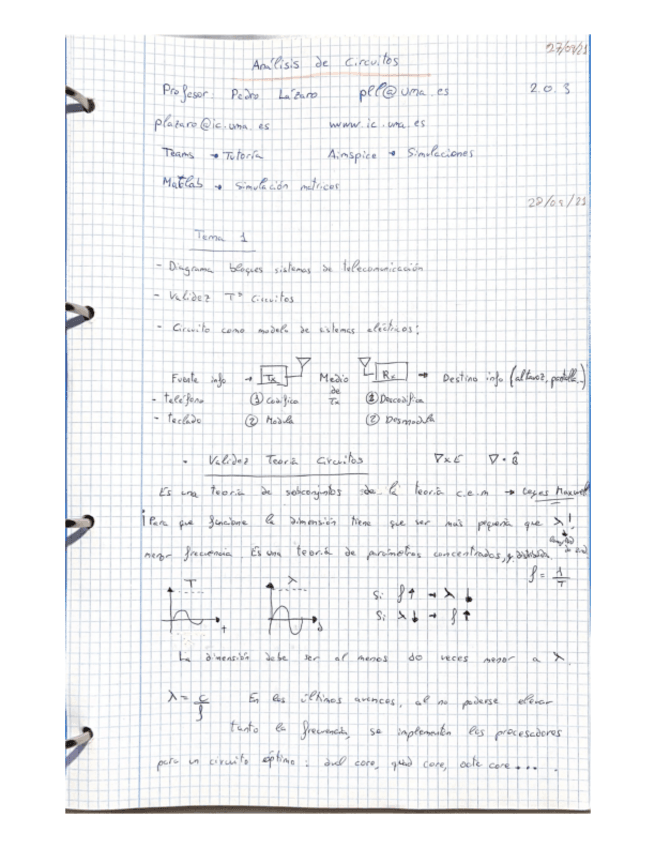 27/09/21
Análisis de Circuitos
Profesor: Pedro Lázaro pll@uma.es 2.0.3
plazaro@ic.uma.es www.ic.uma.es
Teams → Tutoría Aimspice → Simulaciones
Matlab → Simulación matrices
28/09/21
Tema 1
- Diagrama bloques sistemas de telecomunicación
- Validez Tª Circuitos
- Circuito como modelo de sistemas eléctricos:
Fuente info → Tx Medio de Tx Rx → Destino info (altavoz, pantalla...)
- teléfono ① Codifica ① Descodifica
- teclado ② Modula ② Desmodula
· Validez Teoría Circuitos ∇×E ∇·B
Es una teoría de subconjuntos de la teoría c.e.m → Leyes Maxwell
¡Para que funcione la dimensión tiene que ser más pequeña que λ!
menor frecuencia. Es una teoría de parámetros concentrados, y
f = 1/T
T λ Si f↑ → λ↓
t Si λ↓ → f↑
La dimensión debe ser al menos 10 veces menor a λ.
λ = c/f En los últimos avances, al no poderse elevar
tanto la frecuencia, se implementan los procesadores
para un circuito óptimo: dual core, quad core, octe core ....